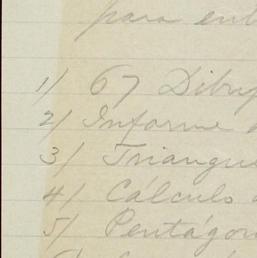 para ent
1/ 67 Dibuj
2/ Informe d
3/ Triangu
4/ Cálculo d
5/ Pentágon
6/